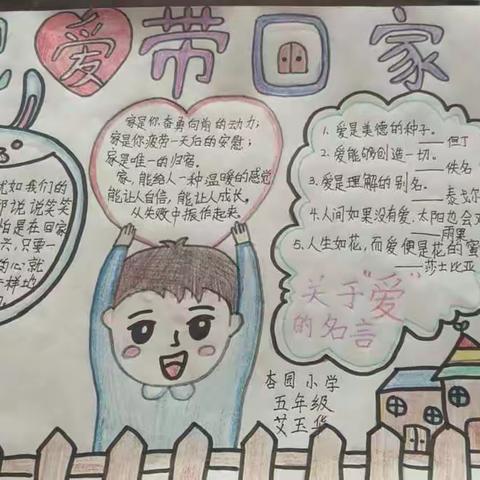 爱带回家
犹如我们的
说说笑笑
怕是在回家
兴,只要一
的心就
样地
家是你奋勇向前的动力;
家是你疲劳一天后的安慰;
家是唯一的归宿。
家,能给人一种温暖的感觉
能让人自信,能让人成长。
从失败中振作起来。
1. 爱是美德的种子。
——但丁
2. 爱能够创造一切。
——佚名
3. 爱是理解的别名。
——泰戈尔
4. 人间如果没有爱,太阳也会
——雨果
5. 人生如花,而爱便是花的蜜
——莎士比亚
关于“爱”
的名言
杏园小学
五年级
艾玉华